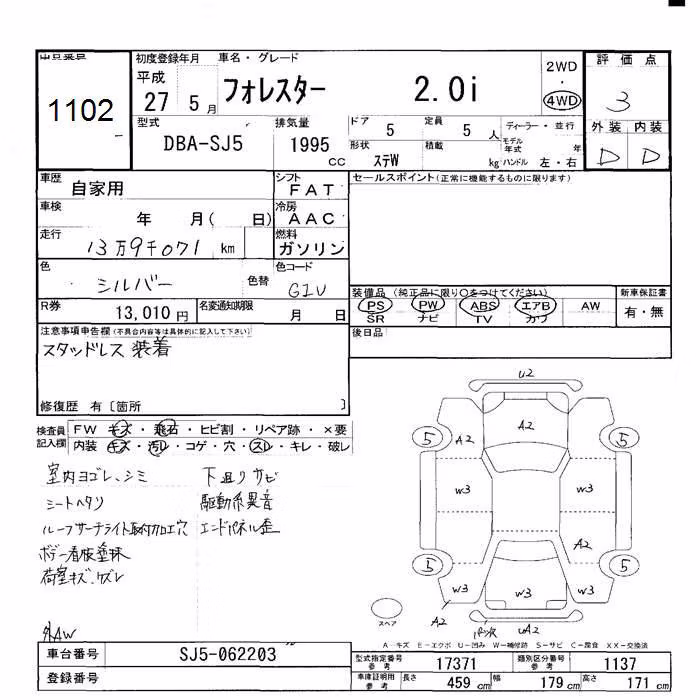 出品番号
1102
初度登録年月
平成
27 5月
車名・グレード
フォレスター 2.0i
2WD
・
4WD
評価点
3
型式
DBA-SJ5
排気量
1995
cc
ドア
5
定員
5 人
形状
ステW
積載
kg
ディーラー・並行
モデル年式 年
ハンドル 左・右
外装 内装
D D
車歴
自家用
シフト
FAT
車検
年 月( 日)
冷房
AAC
走行
13万9千071 km
燃料
ガソリン
色
シルバー
色替
色コード
G1U
R券
13,010円
名変通知期限
月 日
セールスポイント(正常に機能するものに限ります)
装備品(純正品に限り○をつけてください)
PS PW ABS エアB AW
SR ナビ TV カワ
新車保証書
有・無
後日品
注意事項申告欄(不具合内容等は具体的に記入して下さい)
スタッドレス装着
修復歴 有〔箇所 〕
検査員記入欄
FW キズ・飛石・ヒビ割・リペア跡・×要
内装 キズ・汚レ・コゲ・穴・スレ・キレ・破レ
室内ヨゴレ、シミ
シートヘタリ
ルーフサーチライト取付加工穴
ボデー看板塗抹
荷室キズ、クズレ
外AW
下廻りサビ
駆動系異音
エンドパネル歪
U2
A2
A2
5
5
W3
W3
A2
5
5
W3
W3
W3
A2
スペア
A2
A－キズ E－エクボ U－凹み W－補修跡 S－サビ C－腐食 XX－交換済
車台番号
SJ5-062203
登録番号
型式指定番号
参考
17371
類別区分番号
参考
1137
車庫証明用
参考
長さ
459 cm
幅
179 cm
高さ
171 cm